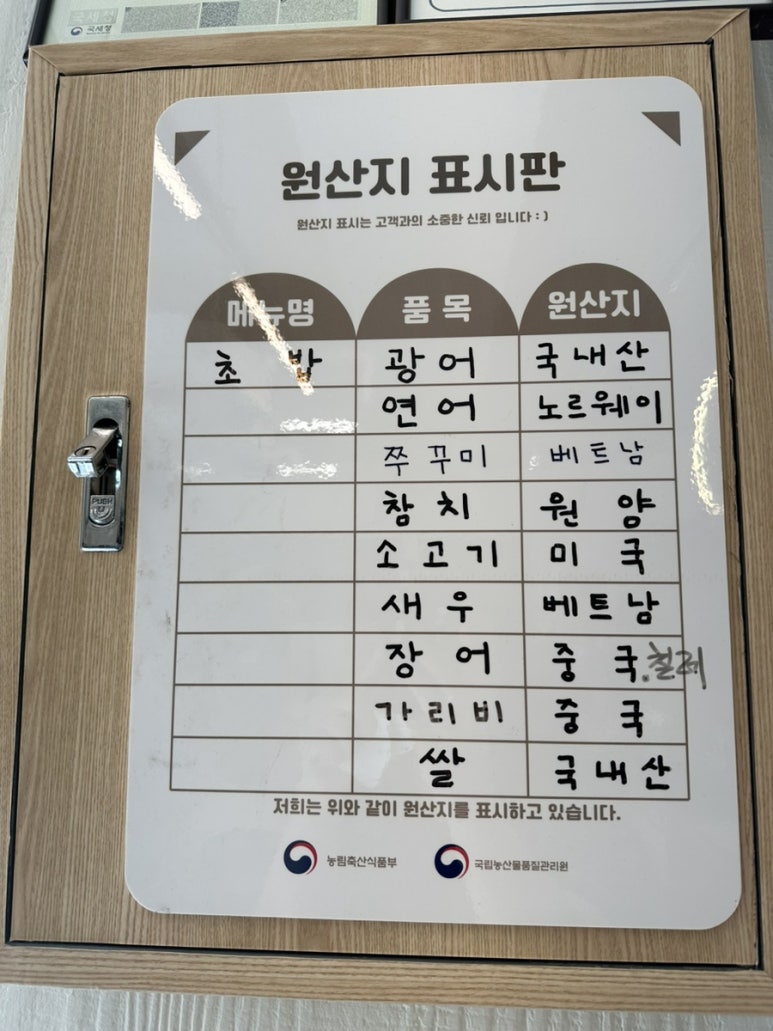 국세청
원산지 표시판
원산지 표시는 고객과의 소중한 신뢰 입니다 : )
메뉴명 품목 원산지
초밥 광어 국내산
연어 노르웨이
쭈꾸미 베트남
참치 원양
소고기 미국
새우 베트남
장어 중국.칠레
가리비 중국
쌀 국내산
저희는 위와 같이 원산지를 표시하고 있습니다.
농림축산식품부 국립농산물품질관리원
PUSH